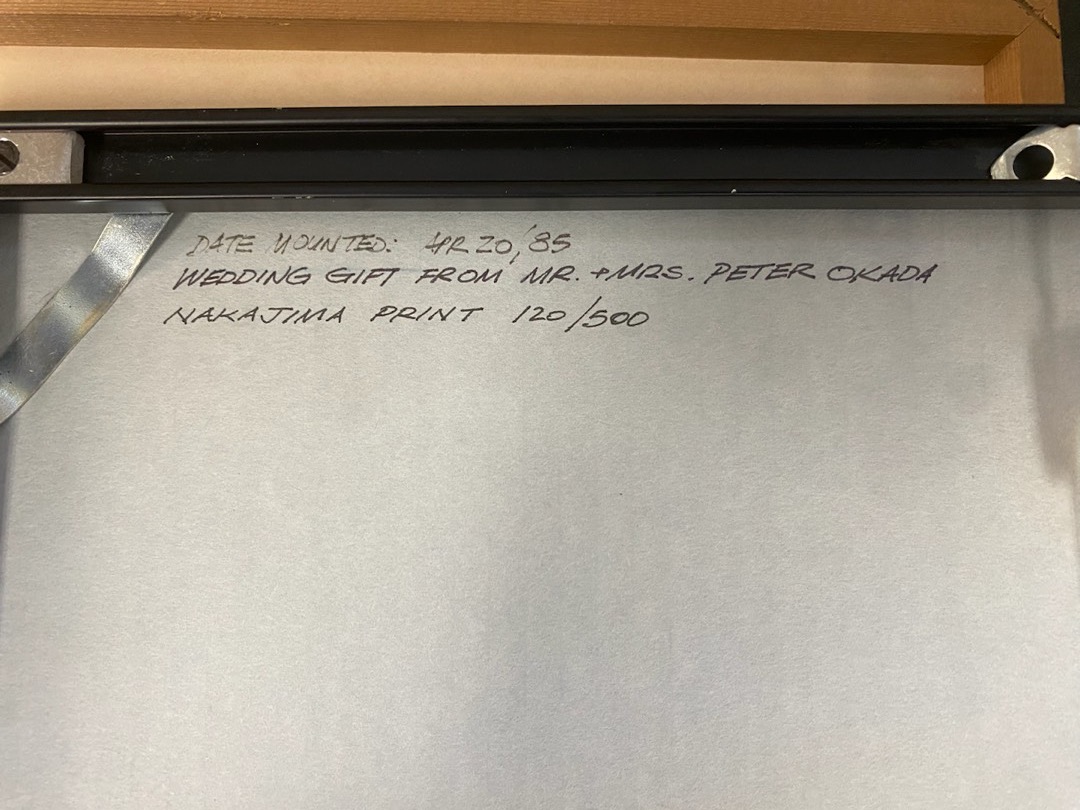 DATE MOUNTED: APR 20, '85
WEDDING GIFT FROM MR. + MRS. PETER OKADA
NAKAJIMA PRINT 120/500